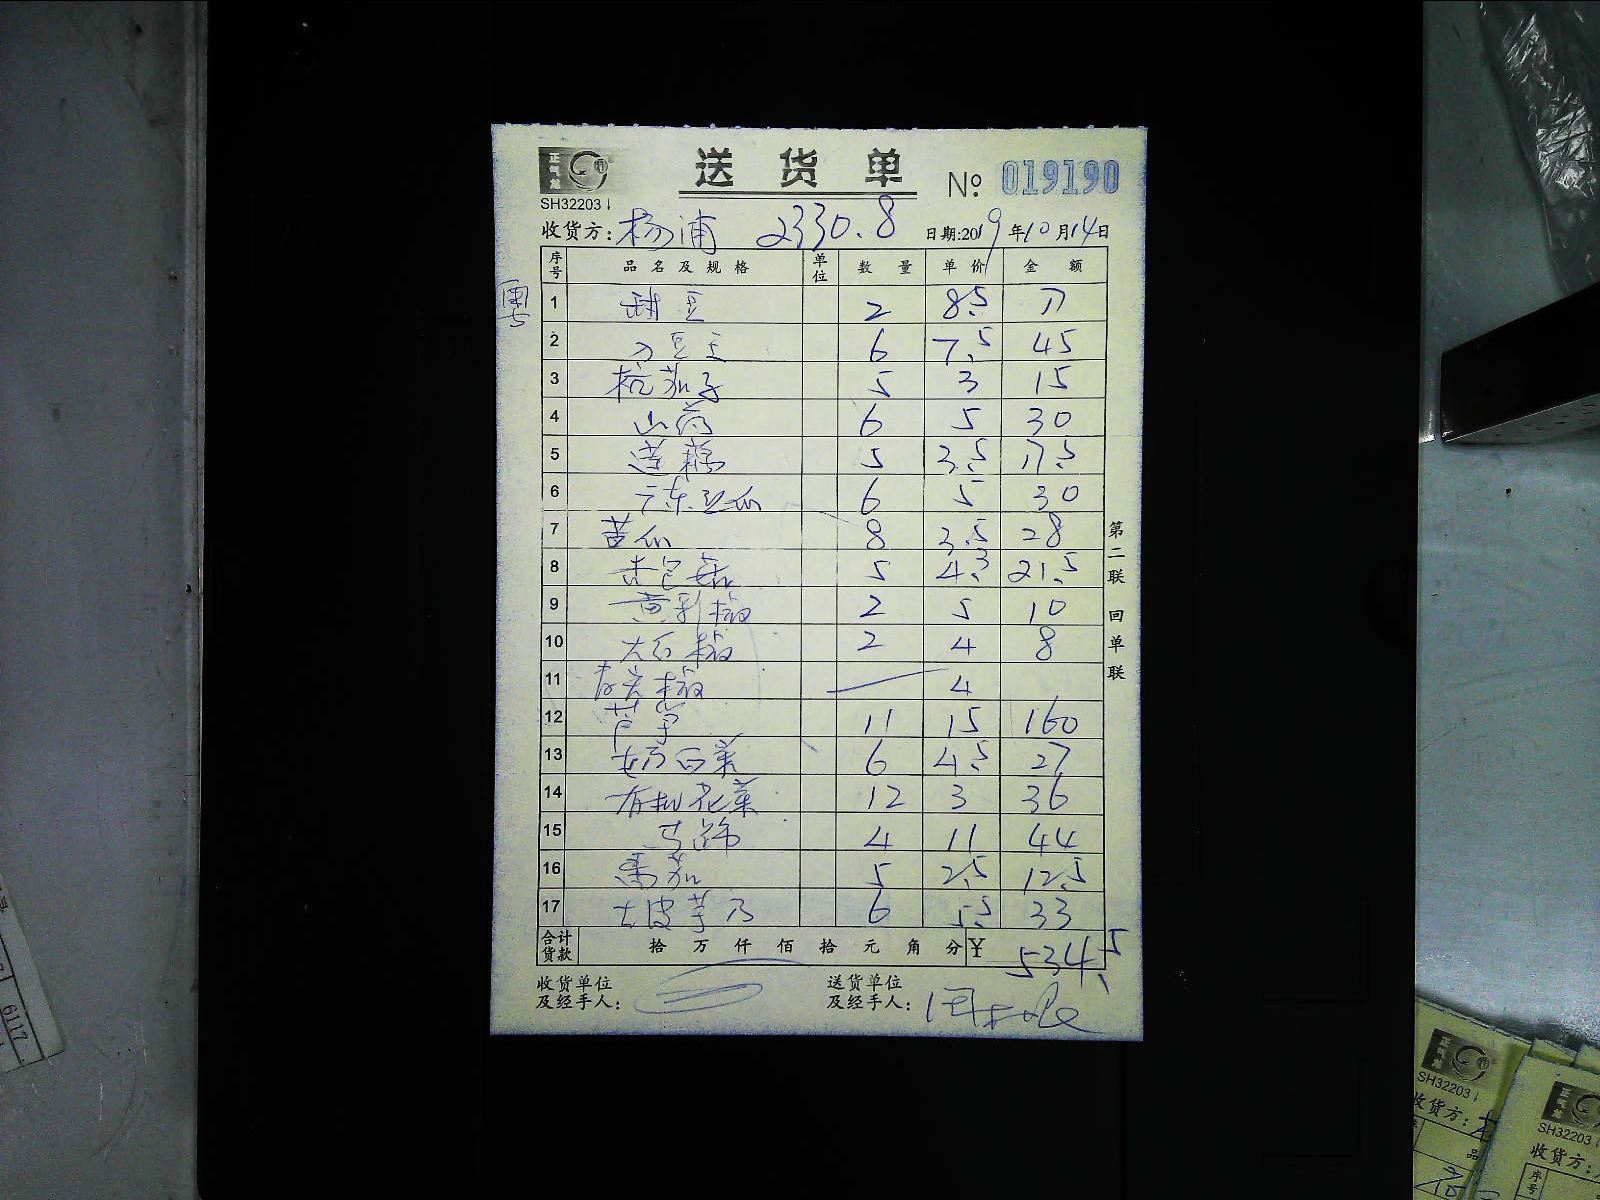 正气龙
送货单 № 019190
SH32203
收货方: 杨浦 2330.8 日期:2019年10月14日
序号 品名及规格 单位 数量 单价 金额
1 甜豆 2 8.5 17
2 刀豆 6 7.5 45
3 杭茄子 5 3 15
4 山药 6 5 30
5 莲藕 5 3.5 17.5
6 广东丝瓜 6 5 30
7 苦瓜 8 3.5 28
8 杏包菇 5 4.3 21.5
9 黄彩椒 2 5 10
10 大红椒 2 4 8
11 青尖椒 4
12 芦笋 11 15 160
13 奶白菜 6 4.5 27
14 有机花菜 12 3 36
15 马蹄 4 11 44
16 番茄 5 2.5 12.5
17 去皮芋乃 6 5.5 33
合计货款 拾 万 仟 佰 拾 元 角 分 ¥ 534.5
收货单位 送货单位
及经手人: 及经手人:
第二联 回单联
6117
正气龙
SH32203
收货方:
品
正气龙
SH32203
收货方:
序号